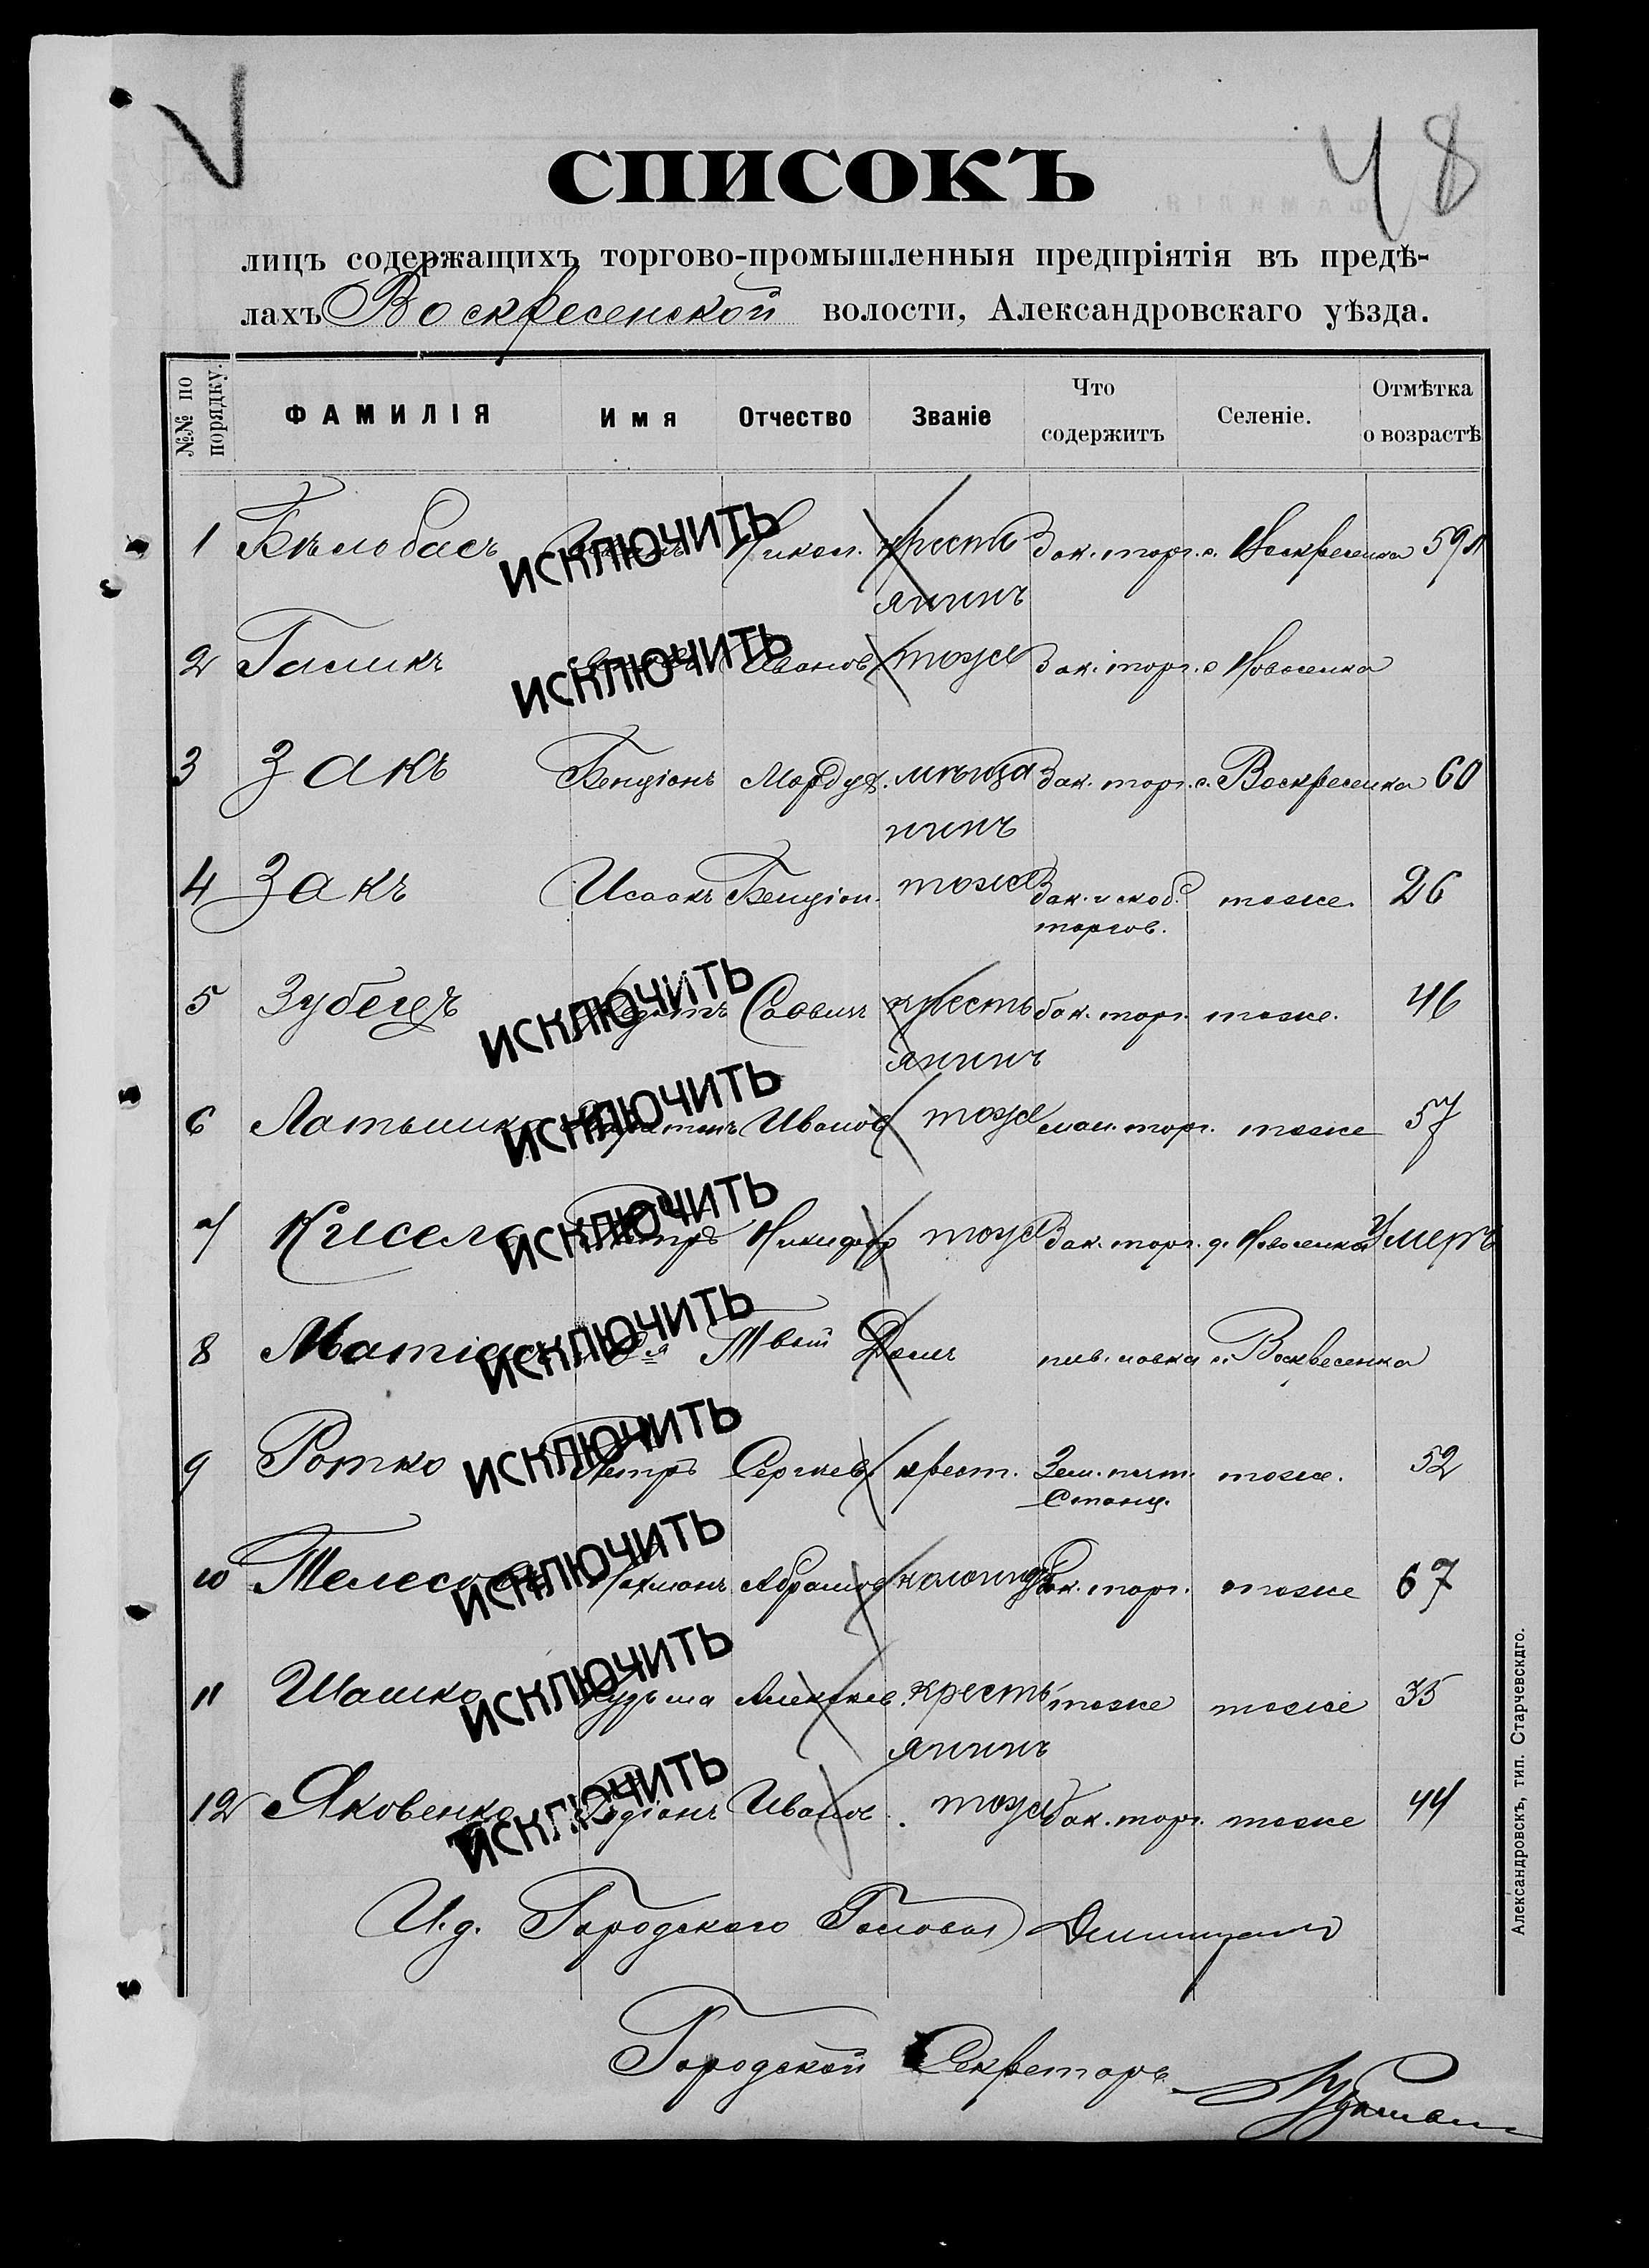 48
СПИСОКЪ
лицъ содержащихъ торгово-промышленныя предпріятія въ предѣ-
лахъ Воскресенской волости, Александровскаго уѣзда.
№№ по порядку. ФАМИЛІЯ Имя Отчество Званіе Что содержитъ Селеніе. Отмѣтка о возрастѣ
1 Бѣлобасъ ИСКЛЮЧИТЬ Никол. кресть бак. торг. с. Воскресенка 59
янинъ
2 Галикъ ИСКЛЮЧИТЬ Иванов тоже бак. торг. с Новоселка
3 Закъ Бенціонъ Мордух. мѣща бак. торг. с. Воскресенка 60
нинъ
4 Закъ Исаакъ Бенціон. тоже бак. и скоб. тоже. 26
торгов.
5 Зубецъ ИСКЛЮЧИТЬ Саввич кресть бак. торг. тоже. 46
янинъ
6 ИСКЛЮЧИТЬ Иванов тоже ман. торг. тоже 57
7 Кисела ИСКЛЮЧИТЬ Петръ Никифор тоже бак. торг. д. Новоселка Умеръ
8 ИСКЛЮЧИТЬ пив. лавка с. Воскресенка
9 Ротко ИСКЛЮЧИТЬ Петръ Сергѣев. крест. Зем. почт. тоже. 52
Станц.
10 ИСКЛЮЧИТЬ Нахманъ Абрамов колонистъ бак. торг. тоже 67
11 Шашко ИСКЛЮЧИТЬ Кузьма Алексѣев. кресть тоже тоже 35
янинъ
12 Яковенко ИСКЛЮЧИТЬ Родіонъ Иванов. тоже бак. торг. тоже 44
И.д. Городского Головы
Городской Секретарь
Александровскъ, тип. Старчевскдго.